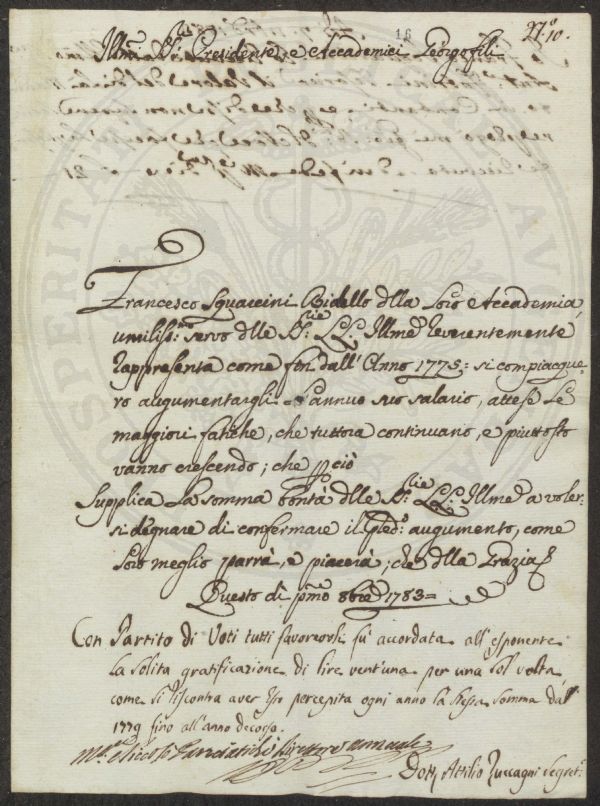 16
N.° 10.
Illmi Sri Presidente, e Accademici Georgofili
Francesco Sguaccini Bidello dlla Loro Accademia,
umiliss:mo servo dlle SS:rie LL: Illme reverentemente
rappresenta come fin dall' Anno 1775: si compiacque-
ro augumentargli l'annuo suo salario, attese le
maggiori fatiche, che tuttora continuano, e piuttosto
vanno crescendo; che pciò
Supplica la somma bontà dlle SS:rie LL: Illme a voler-
si degnare di confermare il pred:o augumento, come
Loro meglio parrà, e piacerà; che dlla Grazia
Questo dì pmo 8bre 1783=
Con Partito di Voti tutti favorevoli fù accordata all'esponente
la solita gratificazione di lire vent'una per una sol volta,
come si riscontra aver Esso percepita ogni anno la stessa somma dal
1779 fino all'anno decorso.
Direttore annuale
Dott. Attilio Zuccagni Segret.o
PROSPERITA